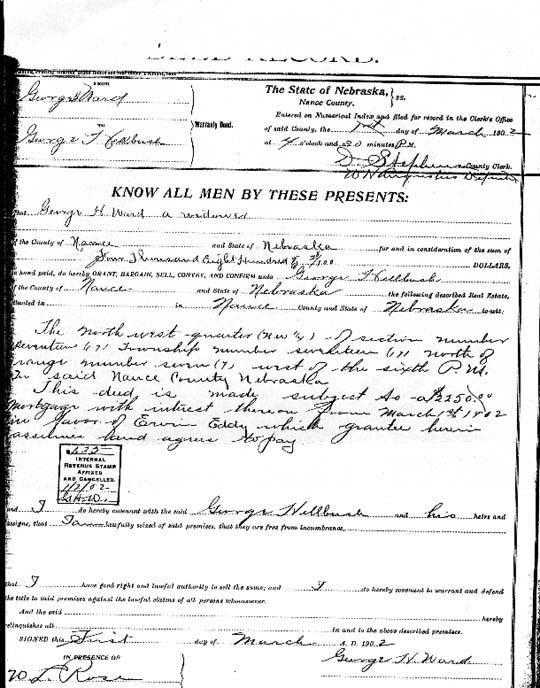 DEED RECORD.
George Ward
TO
George T Hellbush
Warranty Deed.
The State of Nebraska, } ss.
Nance County.
Entered on Numerical Index and filed for record in the Clerk's Office
of said County, the 1st day of March 1902
at 4 o'clock and 20 minutes P.M.
D. Stephens County Clerk.
KNOW ALL MEN BY THESE PRESENTS:
That George H. Ward a widower
of the County of Nance and State of Nebraska for and in consideration of the sum of
Four Thousand Eight Hundred & DOLLARS,
in hand paid, do hereby GRANT, BARGAIN, SELL, CONVEY, AND CONFIRM unto George Hellbush
of the County of Nance and State of Nebraska the following described Real Estate,
situated in in Nance County and State of Nebraska to-wit:
The North west quarter (NW 1/4) of section number
seventeen (17) Township number seventeen (17) north of
range number seven (7) west of the sixth P.M.
In said Nance County Nebraska
This deed is made subject to a $2250.00
Mortgage with interest thereon from March 1st 1902
in favor of Erwin Eddy which grantee herein
assumes and agrees to pay
INTERNAL
REVENUE STAMP
AFFIXED
AND CANCELLED.
G.H.W.
and I do hereby covenant with the said George Hellbush and his heirs and
assigns, that I am lawfully seized of said premises, that they are free from incumbrance
that I have good right and lawful authority to sell the same; and I do hereby covenant to warrant and defend
the title to said premises against the lawful claims of all persons whomsoever.
And the said hereby
relinquishes all in and to the above described premises.
SIGNED this First day of March A. D. 1902
IN PRESENCE OF George H. Ward
W. L. Rose